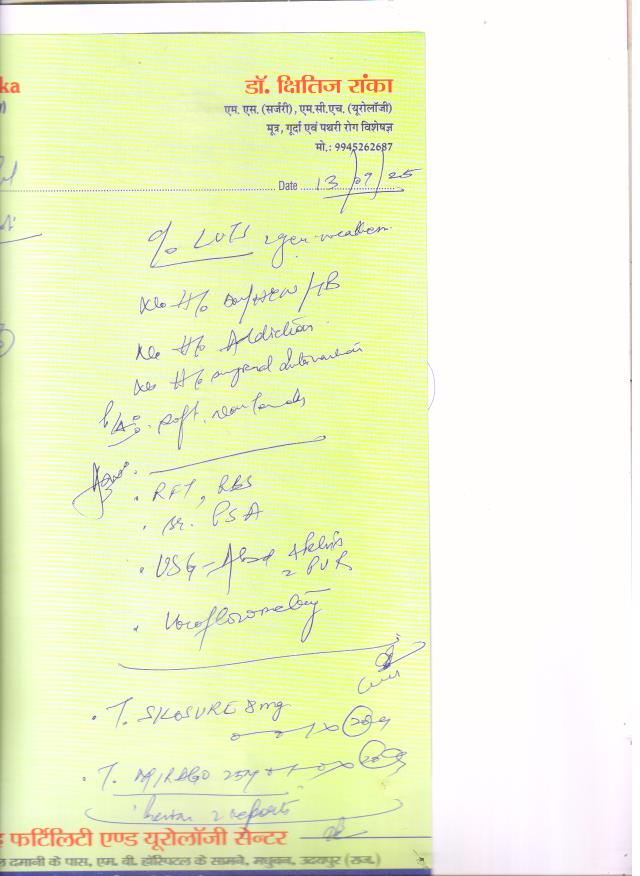 ka
डॉ. क्षितिज रांका
एम. एस. (सर्जरी), एम.सी.एच. (यूरोलॉजी)
मूत्र, गूर्दा एवं पथरी रोग विशेषज्ञ
मो.: 9945262687
Date 13/09/25
c/o LUTS
No H/o DM/HTN/TB
No H/o Addiction
No H/o surgical intervention
P/A: soft, non tender
Adv:
. RFT, RBS
. Sr. PSA
. USG - Abd + Pelvis
c PVR
. Uroflowmetry
. T. SILOSURE 8mg
0-0-1 x 20
. T. MIRAGO 25 0-1-0 x 20
Review c reports
फर्टिलिटी एण्ड यूरोलॉजी सेन्टर
दमानी के पास, एम. बी. हॉस्पिटल के सामने, मधुबन, उदयपुर (राज.)